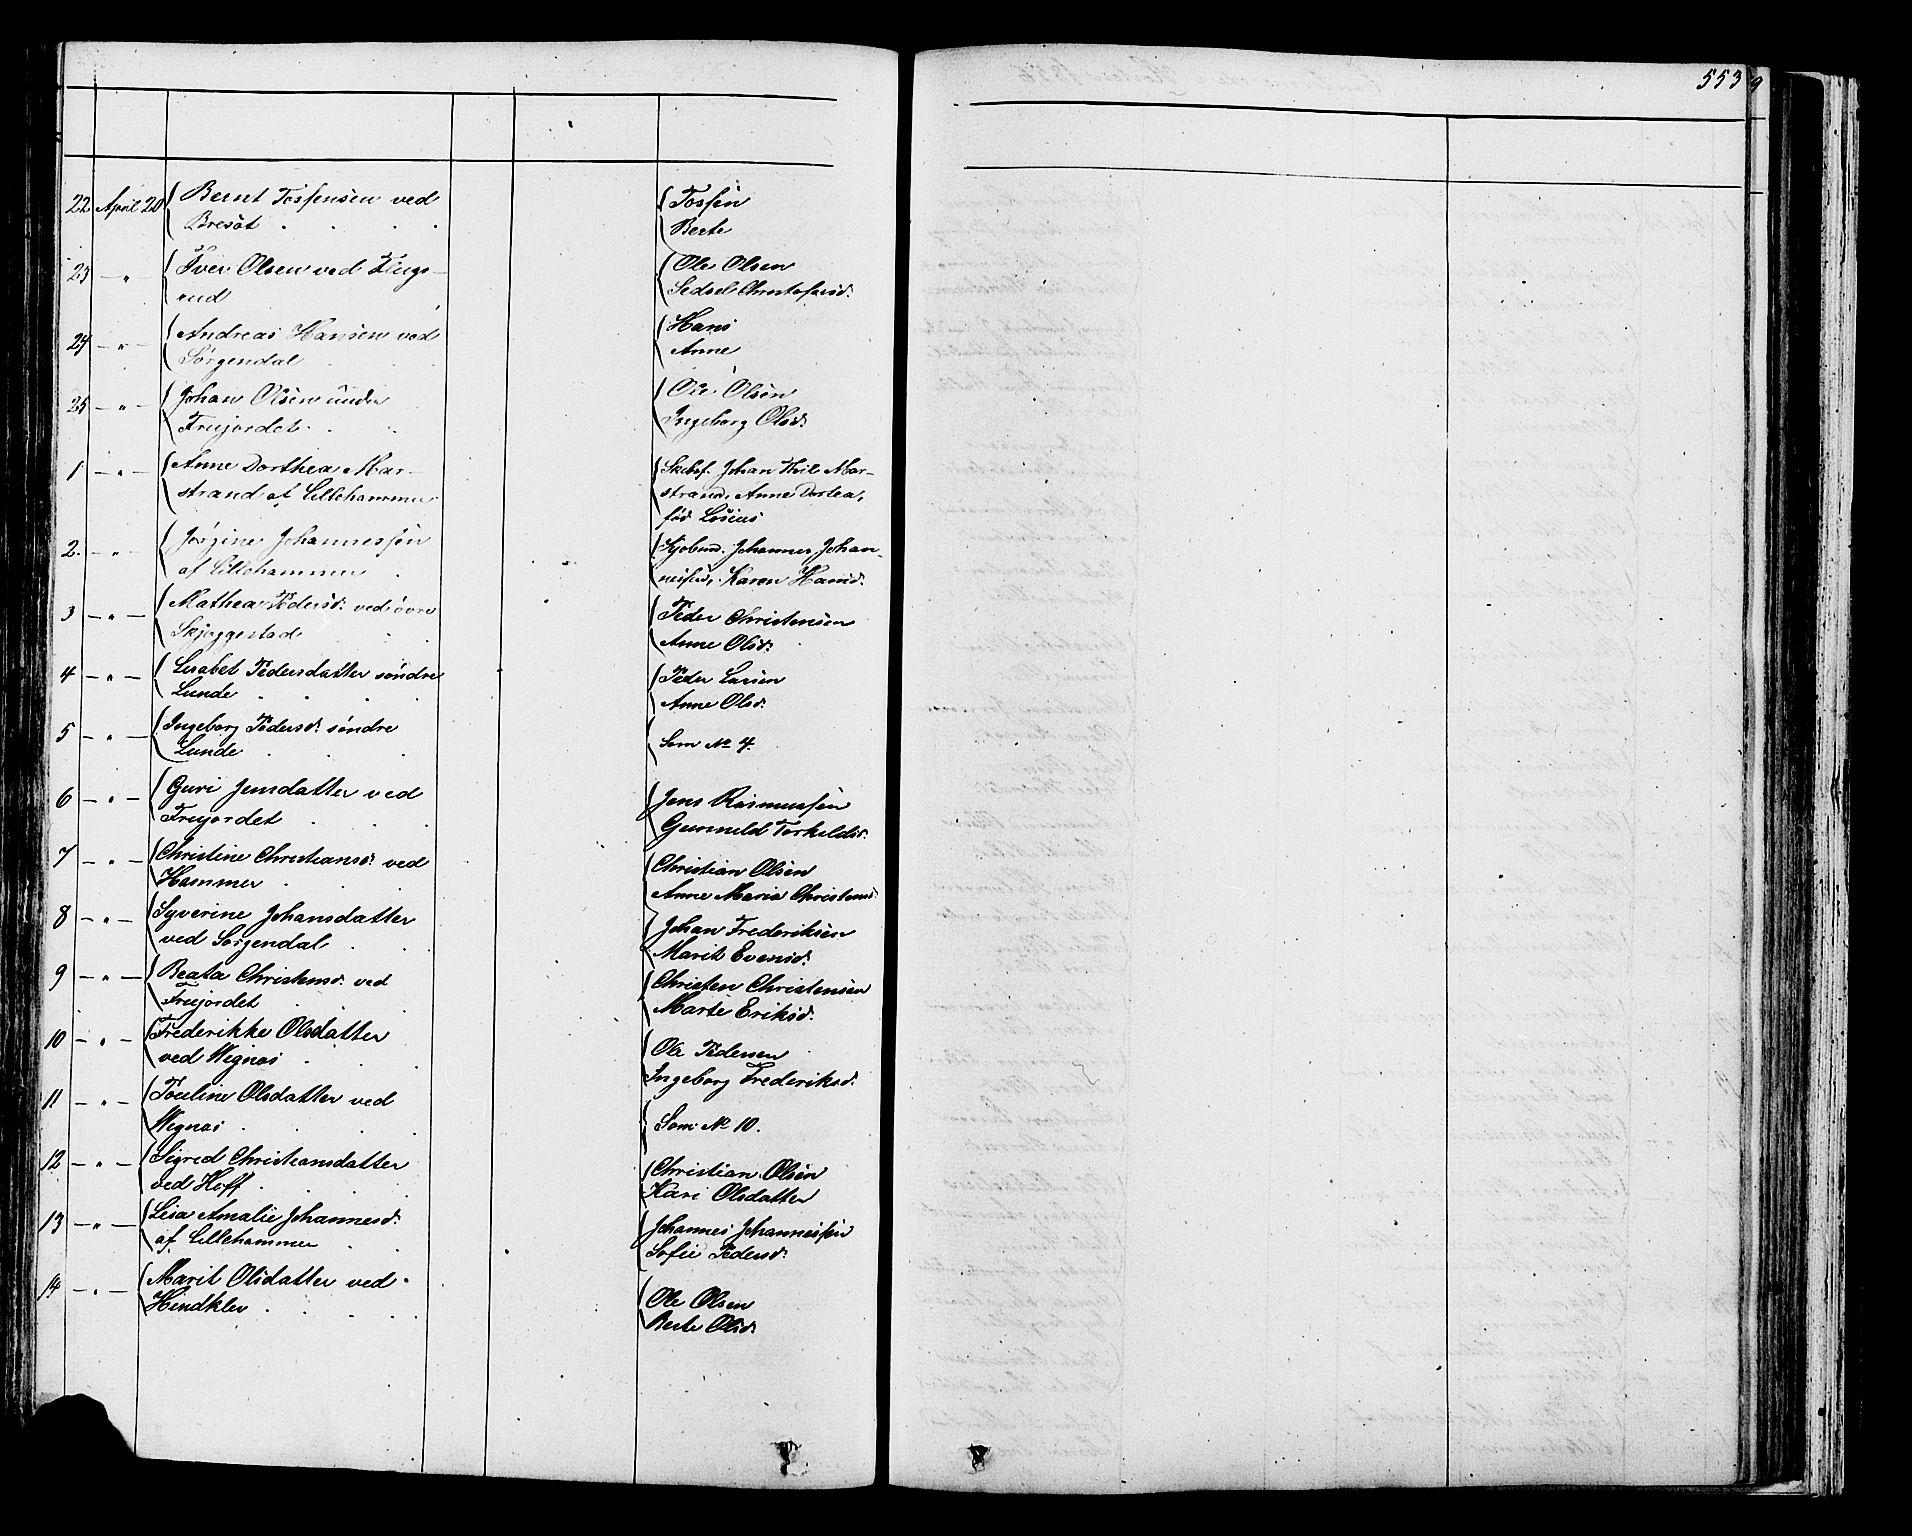 553
22 April 20 Bernt Tosfensen ved
Bresøt
Tosfen
Berte
23 - " - Iver Olsen ved Kings-
rud
Ole Olsen
Sedsel Christofersd.
24 - " - Andreas Hansen ved
Sørgendal
Hans
Anne
25 - " - Johan Olsen under
Frujordet
Ole Olsen
Ingeborg Olsd.
1 - " - Anne Dorthea Mar-
strand af Lillehammer
Johan Mar-
strand, Anne Dortea,
fød
2. - " - Jørgine Johannessen
af Lillehammer
Kjøbmd. Johannes Johan-
nessen, Karen Hansd.
3 - " - Mathea Pedersd. ved øvre
Skjæggestad
Peder Christensen
Anne Olsd.
4 - " - Lisabet Pedersdatter søndre
Lunde
Peder Larsen
Anne Olsd.
5 - " - Ingeborg Pedersd. søndre
Lunde
Som No 4.
6 - " - Guri Jensdatter ved
Frujordet
Jens Rasmussen
Gunnild Torkeldsd.
7 - " - Christine Christiansd. ved
Hammer
Christian Olsen
Anne Maria Christensd.
8 - " - Syverine Johansdatter
ved Sørgendal
Johan Frederiksen
Marit Evensd.
9 - " - Beata Christensd. ved
Frujordet
Christen Christensen
Marte Eriksd.
10 - " - Frederikke Olsdatter
ved Wignas
Ole Pedersen
Ingeborg Frederiksd.
11 - " - Pouline Olsdatter ved
Wignas
Som No 10.
12 - " - Sigred Christiansdatter
ved Hoff
Christian Olsen
Kari Olsdatter
13 - " - Lisa Amalie Johannesd.
af Lillehammer
Johannes Johannessen
Sofie Pedersd.
14 - " - Marit Olsdatter ved
Hindklev
Ole Olsen
Berte Olsd.